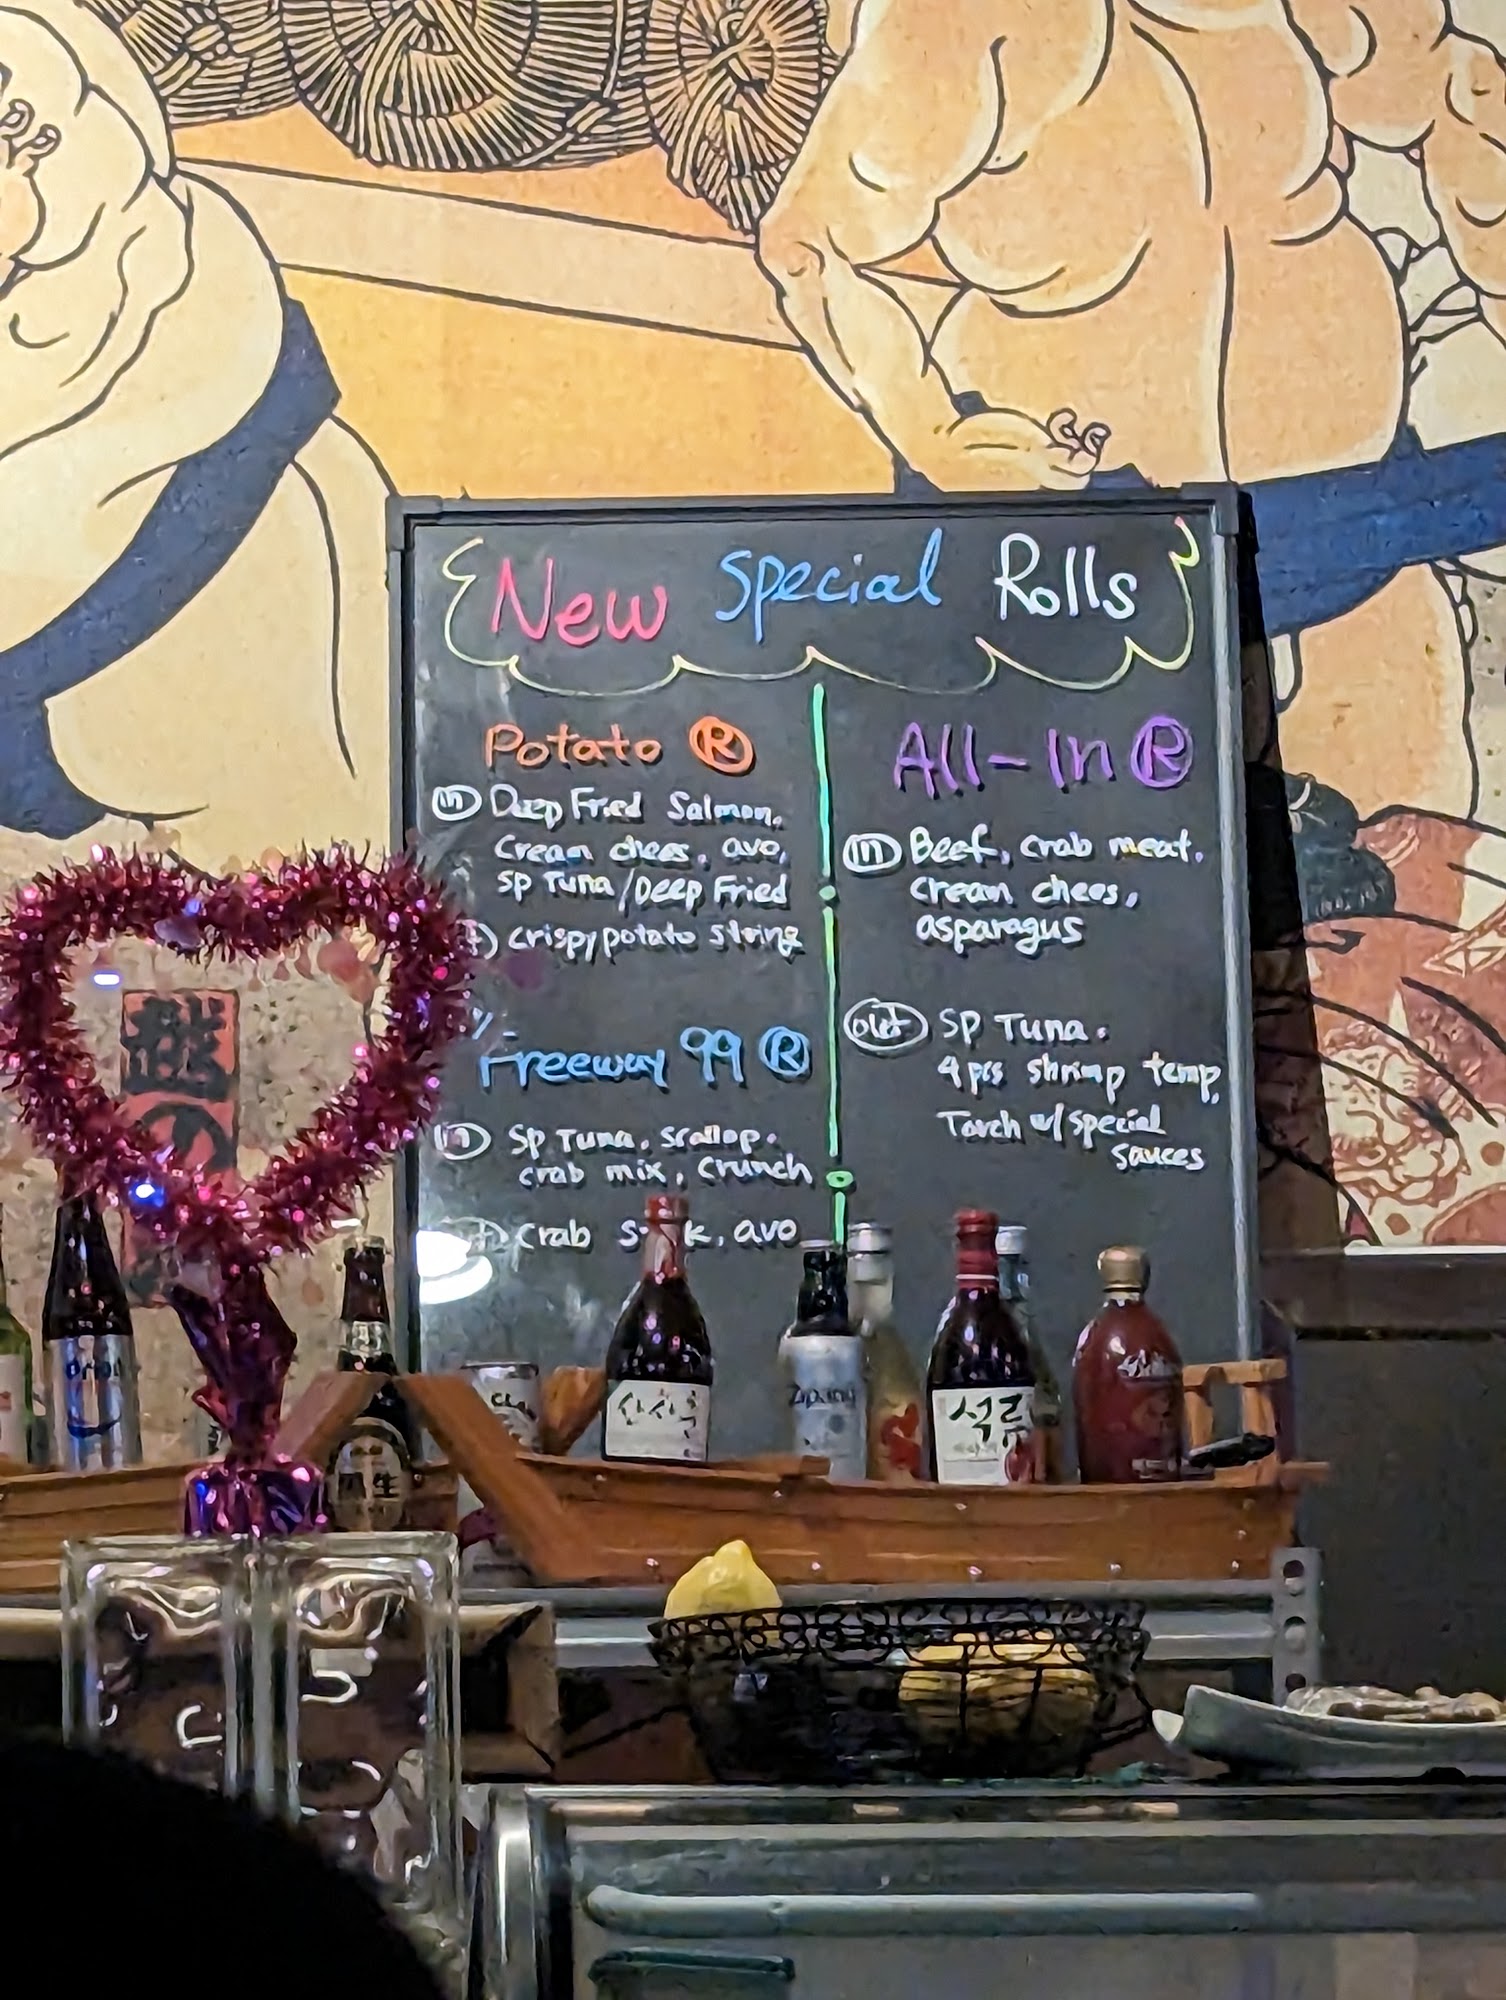 New Special Rolls
Potato Ⓡ
in Deep Fried Salmon,
Cream chees, avo,
SP Tuna/Deep Fried
crispy potato string
Freeway 99 Ⓡ
in SP Tuna, scallop,
crab mix, crunch
Crab avo
All-In Ⓡ
in Beef, crab meat,
cream chees,
asparagus
out SP Tuna,
4pcs shrimp temp,
Torch w/ special
sauces
산사춘
석류